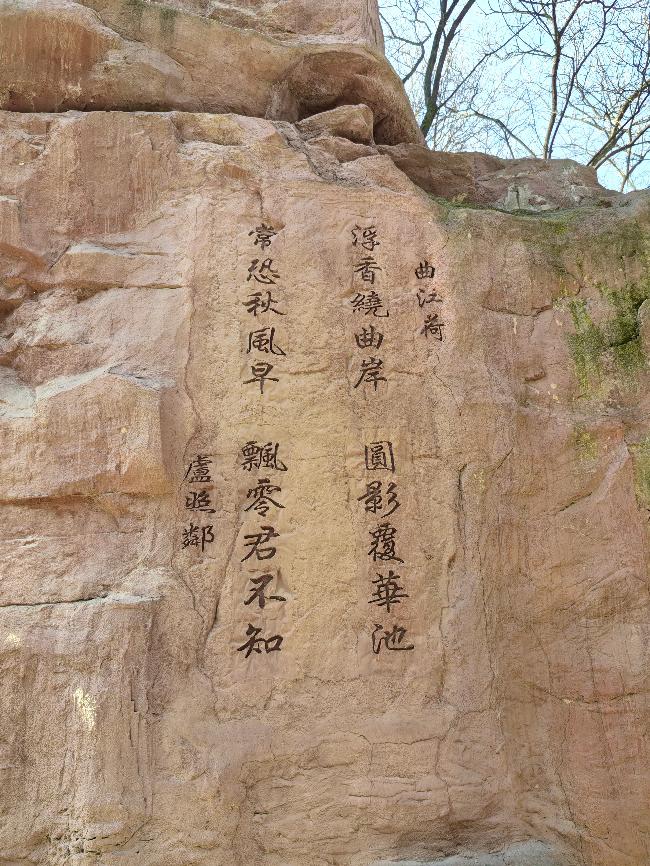 曲江荷
浮香繞曲岸 圓影覆華池
常恐秋風早 飄零君不知
盧照鄰